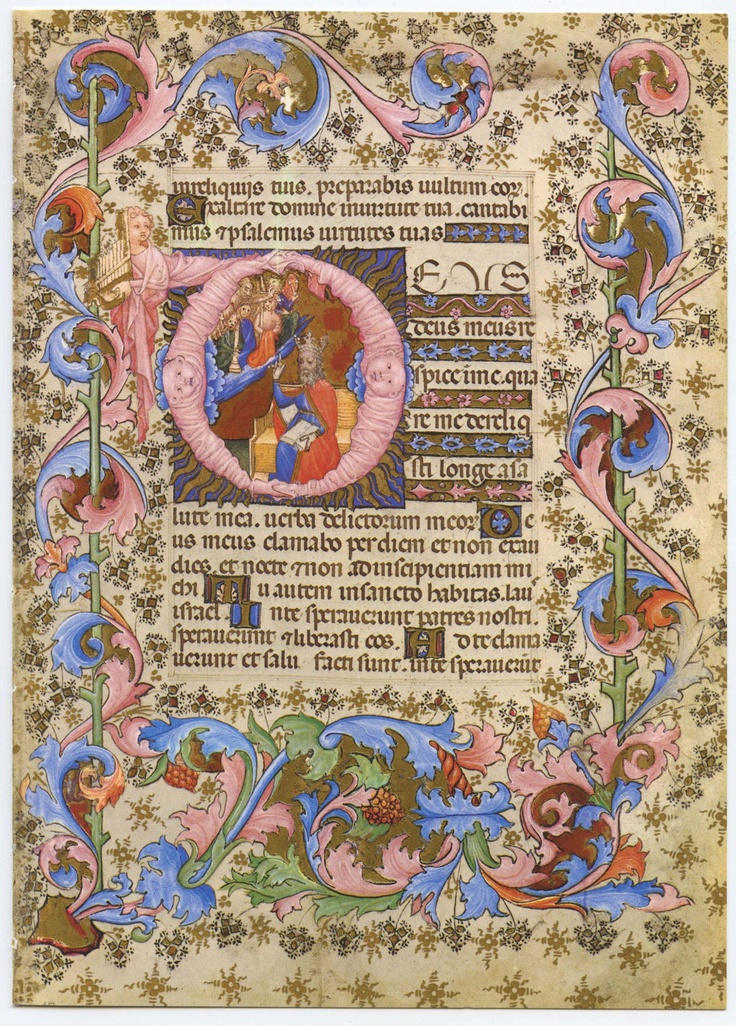 inreliquijs tuis. preparabis uultum eoꝝ.
Exaltare domine inuirtute tua. cantabi
mus ⁊psalemus uirtutes tuas
DEUS
deus meus re
spice ime. qua
re me dereliq
sti longe asa
lute mea. uerba delictorum meoꝝ De
us meus clamabo per diem et non exau
dies. et nocte ⁊non ad inscipientiam mi
chi Tu autem insancto habitas. lau
israel. Inte sperauerunt patres nostri.
sperauerunt ⁊liberasti eos. Ad te clama
uerunt et salu facti sunt. inte sperauerūt